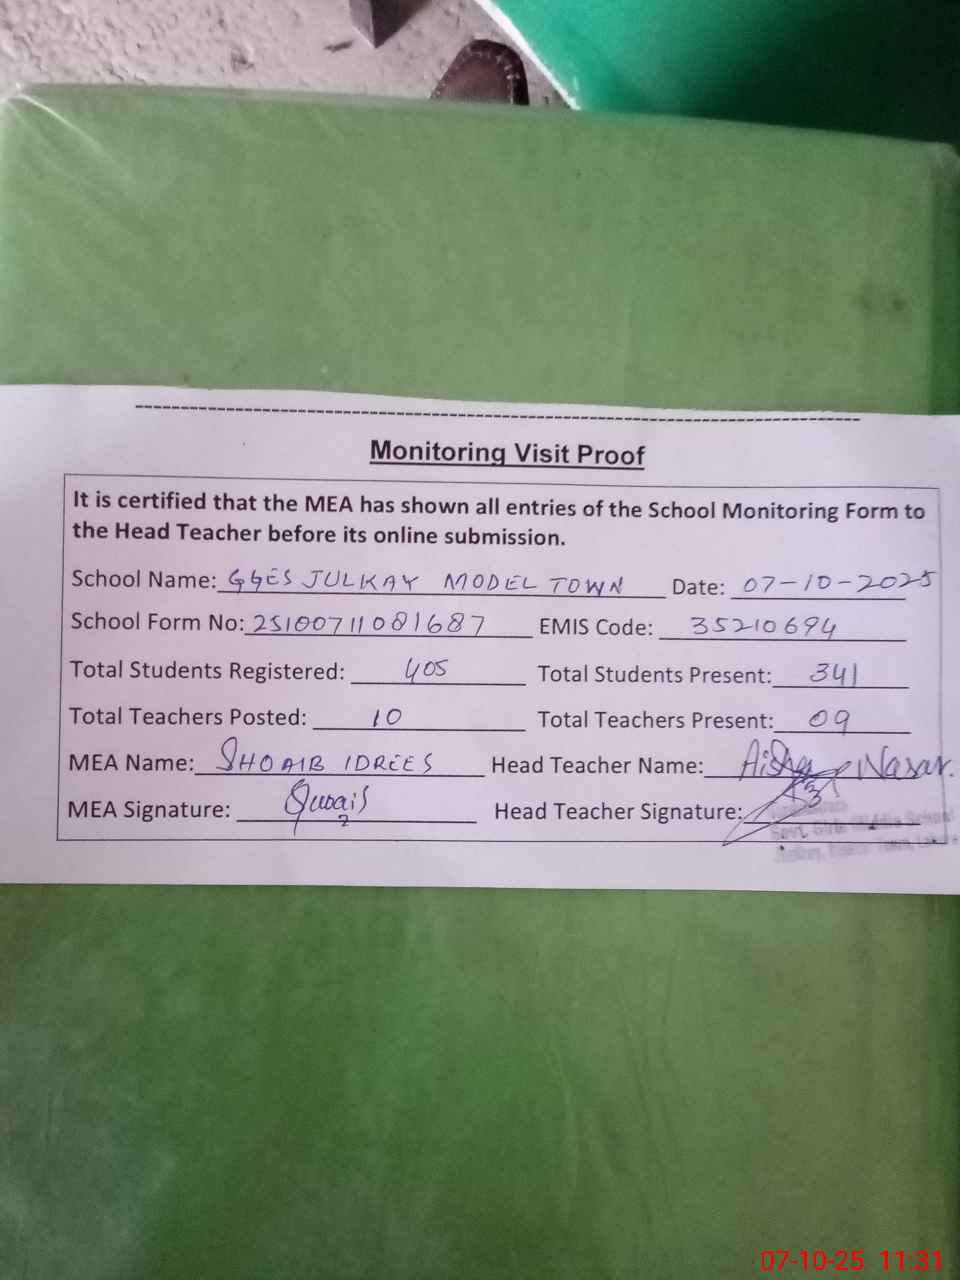 Monitoring Visit Proof
It is certified that the MEA has shown all entries of the School Monitoring Form to
the Head Teacher before its online submission.
School Name: GGES JULKAY MODEL TOWN Date: 07-10-2025
School Form No: 2510071108 1687 EMIS Code: 35210694
Total Students Registered: 405 Total Students Present: 341
Total Teachers Posted: 10 Total Teachers Present: 09
MEA Name: SHOAIB IDREES Head Teacher Name: Aisha Nasar.
MEA Signature: Head Teacher Signature:
Govt. Girls Middle School
Town, Lahore
07-10-25 11:31